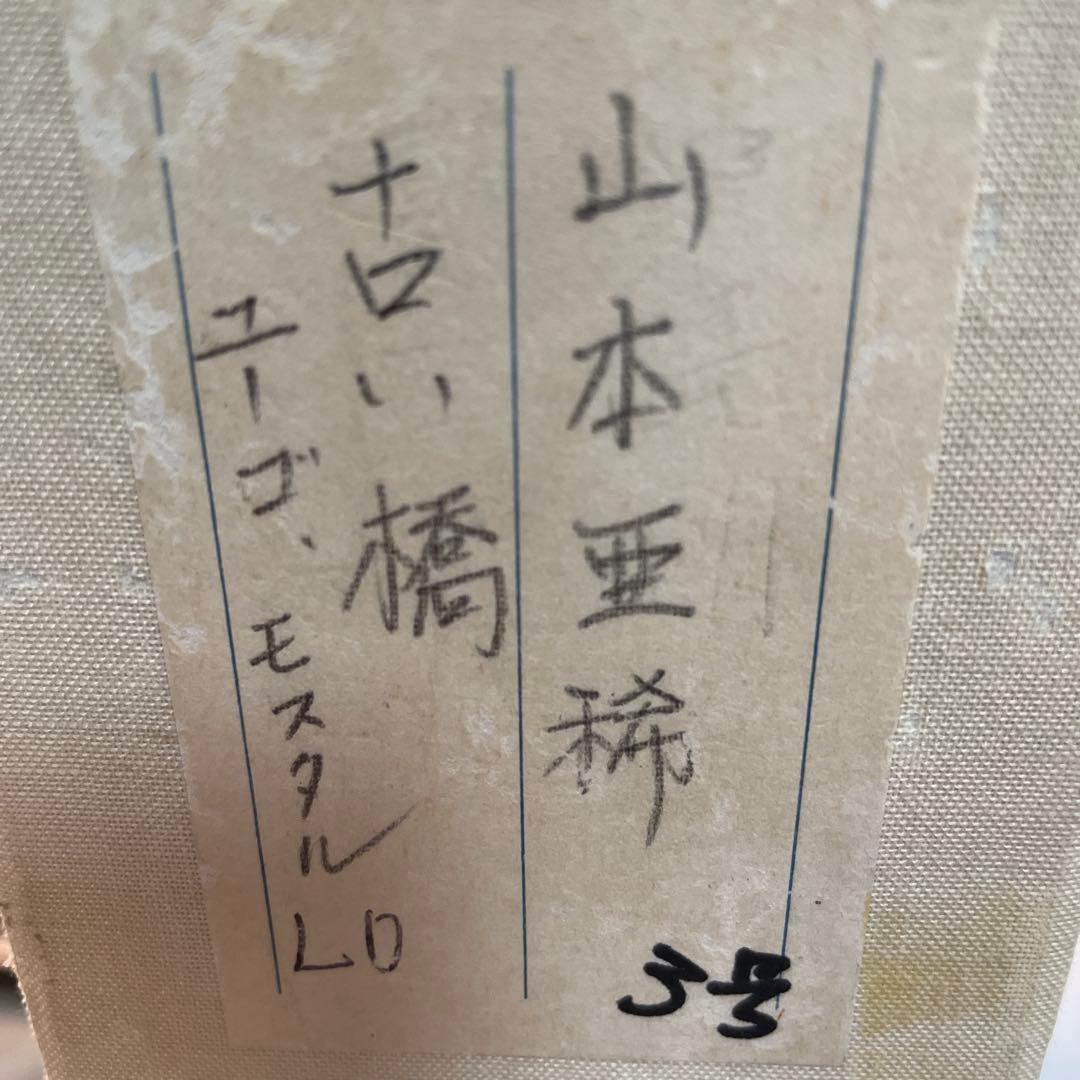 山本亜稀
3号
古い橋
ユーゴ、モスタル
LD